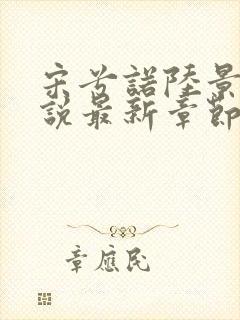 宋兮諾陸景
說最新章節
章應民